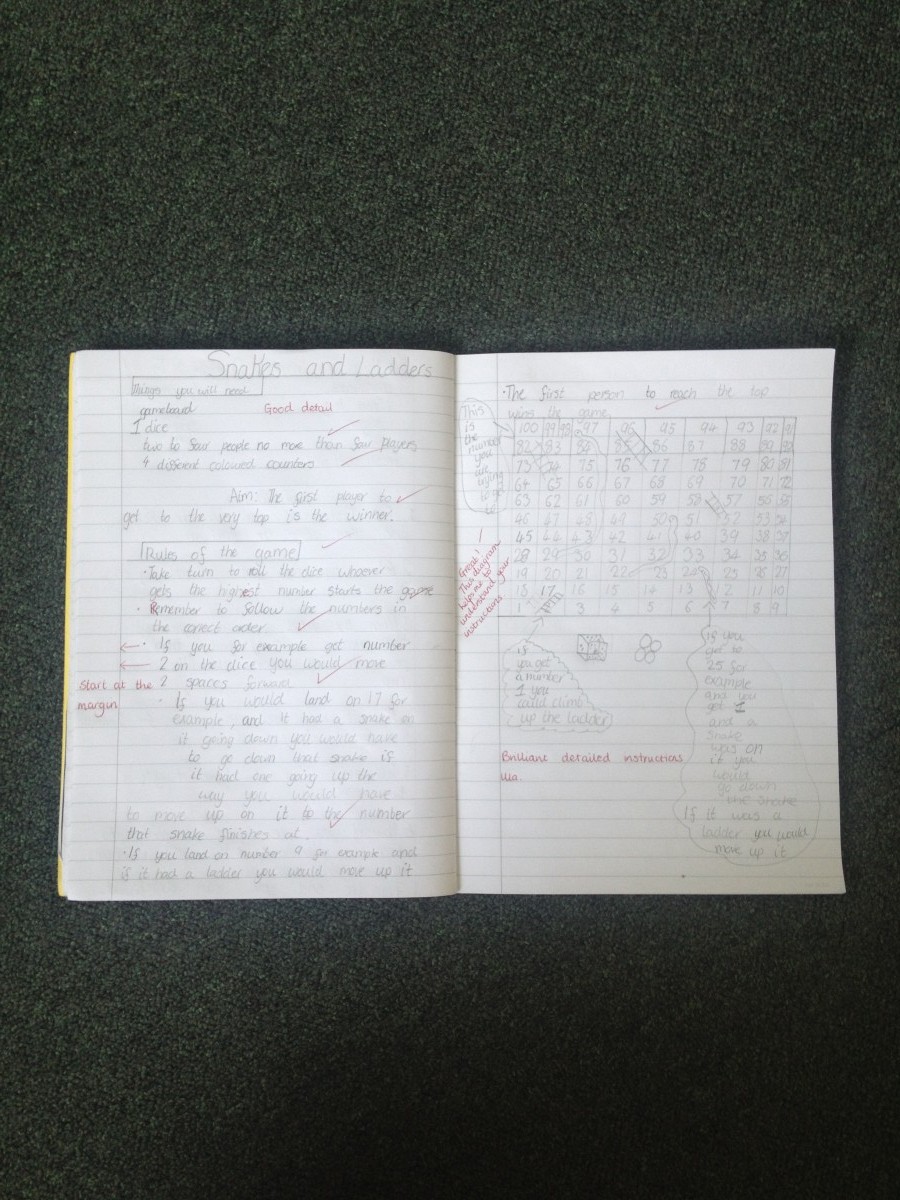 Snakes and Ladders
Things you will need
gameboard
Good detail
1 dice
two to four people no more than four players
4 different coloured counters
Aim: The first player to
get to the very top is the winner.
Rules of the game
• Take turn to roll the dice whoever
gets the highest number starts the game
• Remember to follow the numbers in
the correct order.
• If you for example get number
2 on the dice you would move
2 spaces forward
start at the
margin
• If you would land on 17 for
example, and it had a snake on
it going down you would have
to go down that snake if
it had one going up the
way you would have
to move up on it to the number
that snake finishes at.
• If you land on number 9 for example and
if it had a ladder you would move up it
• The first person to reach the top
wins the game
This
is
the
number
you
are
trying
to go
to
100 99 98 97 96 95 94 93 92 91
82 83 84 85 86 87 88 89 90
73 74 75 76 77 78 79 80 81
64 65 66 67 68 69 70 71 72
63 62 61 60 59 58 57 56 55
46 47 48 49 50 51 52 53 54
45 44 43 42 41 40 39 38 37
28 29 30 31 32 33 34 35 36
19 20 21 22 23 24 25 26 27
18 17 16 15 14 13 12 11 10
1 3 4 5 6 7 8 9
Great!
This diagram
helps me to
understand your
instructions
if
you get
a number
1 you
would climb
up the ladder
if you
go to
25 for
example
and you
get 1
and a
snake
was on
it you
would
go down
the snake
If it was a
ladder you would
move up it
Brilliant detailed instructions